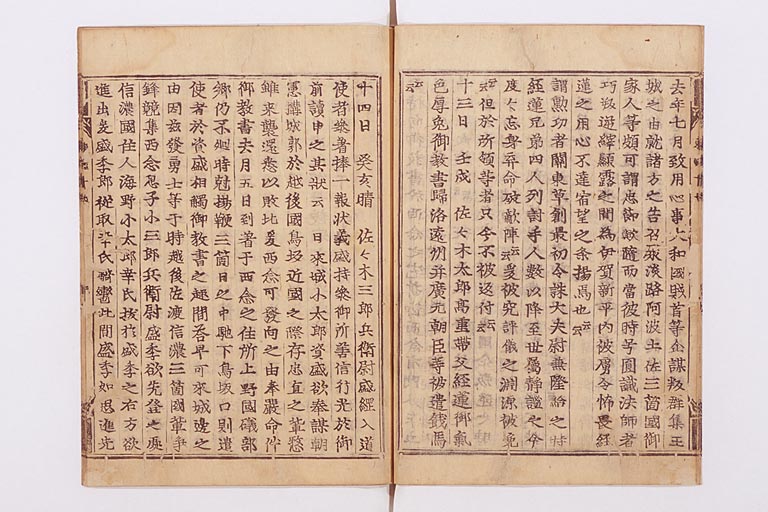 去年七月致用心事大和國賊首等企謀叛群集王
城之由就諸方之告召淡路阿波土佐三箇國御
家人等頗可謂忠節歟隨而當彼時号圓識法師者
巧叛逆縡顯露之間爲伊賀新平内被虜令怖畏經
蓮之用心不達宿望之条揚焉也云云
謂勲功者關東草創最初令誅大夫尉兼隆給之時
經蓮兄弟四人列討手人數以降至世屬静謐之今
度々忘身弃命破敵陣云云爰被究評儀之淵源被免
云云但於所領等者只今不被返付云云
十三日 壬戌 佐々木太郎高重帶父經蓮御氣
色厚免御教書歸洛遠州并廣元朝臣等被遣餞馬
云云
十四日 癸亥晴 佐々木三郎兵衛尉盛經入道
使者參著捧一報状義盛持參御所善信行光於御
前讀申之其狀云 日來城小太郎資盛欲奉謀朝
憲搆城郭於越後國鳥坂近國之際存忠直之輩愁
雖來襲還悉以敗北爰西念可發向之由奉嚴命件
御教書去月五日到著于西念之住所上野國礒部
郷仍不廻時尅揚鞭三箇日之中馳下鳥坂口則遣
使者於資盛相觸御教書之趣問答早可來城邊之
由因茲發勇士等于時越後佐渡信濃三箇國輩爭
鉾競集西念息子小三郎兵衛尉盛季欲先登之處
信濃國住人海野小太郎幸氏抜於盛季之右方欲
進出爰盛季郎從取幸氏轡此間盛季如思進先